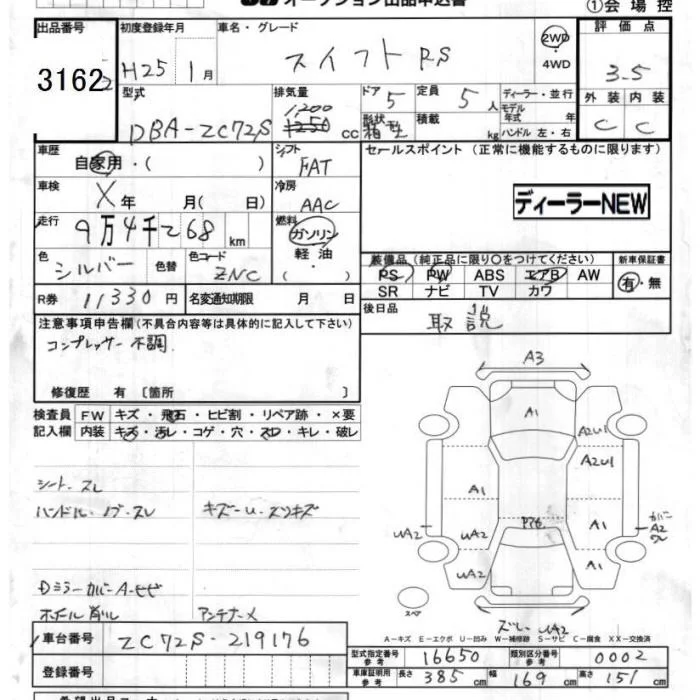 オークション出品申込書
①会場控
出品番号 初度登録年月 車名・グレード 評価点
3162 H25 1月 スイフト RS 2WD・4WD 3.5
型式 排気量 ドア 5 定員 5人 ディーラー・並行 外装 内装
モデル年式 年
DBA-ZC72S 1,200 1250 cc 形状 箱型 積載 kg ハンドル 左・右 C C
車歴 自家用・( ) シフト FAT セールスポイント (正常に機能するものに限ります)
車検 X年 月(日) 冷房 AAC ディーラーNEW
走行 9万4千268km 燃料 ガソリン・軽油・( )
装備品(純正品に限り○をつけてください) 新車保証書
色 シルバー 色替 色コード ZNC PS PW ABS エアB AW 有・無
SR ナビ TV カワ
R券 11330円 名変通知期限 月 日
後日品 取説
注意事項申告欄(不具合内容等は具体的に記入して下さい)
コンプレッサー不調
修復歴 有〔箇所 〕
検査員記入欄 FW キズ・飛石・ヒビ割・リペア跡・×要
内装 キズ・汚レ・コゲ・穴・スレ・キレ・破レ
シート スレ
ハンドル・ノブ・スレ キズ〜U・スリキズ
Dミラーカバー A・ヒビ
ホイール削れ アンテナ〆
A3
A1
A2U1
A2U1
A1
A1
P76
UA2
UA2
カバー A2 ワレ
UA2
A1
スペア
ズレ UA2
車台番号 ZC72S-219176
A-キズ E-エクボ U-凹み W-補修跡 S-サビ C-腐食 XX-交換済
型式指定番号 参考 16650 類別区分番号 参考 0002
登録番号 車庫証明用 参考 長さ 385cm 幅 169cm 高さ 151cm